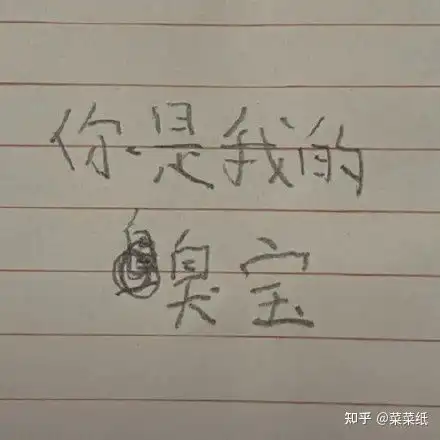 你是我的
臭宝
知乎 @菜菜纸